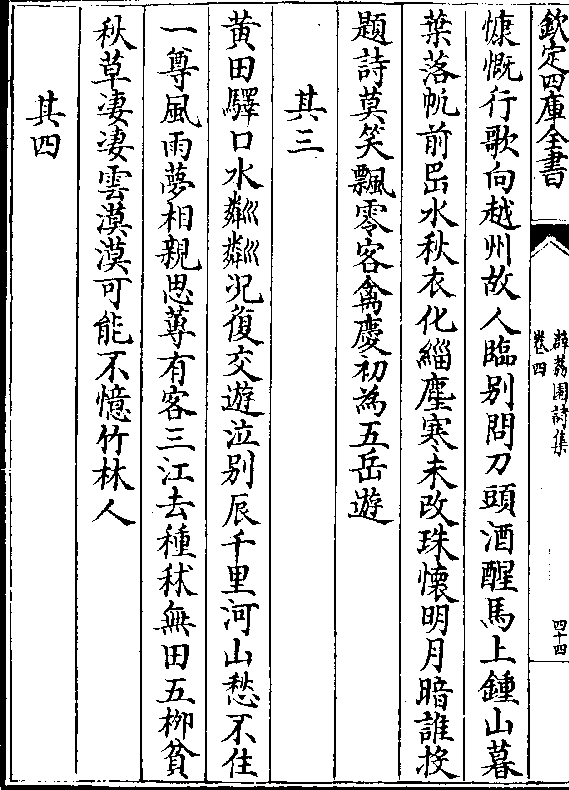 欽定四庫全書
薜荔園詩集
卷四
四十四
慷慨行歌向越州故人臨别問刀頭酒醒馬上鍾山暮
葉落帆前岊水秋衣化緇塵寒未改珠懷明月暗誰投
題詩莫笑飄零客禽慶初為五岳遊
其三
黄田驛口水粼粼況復交遊泣别辰千里河山愁不住
一尊風雨夢相親思蓴有客三江去種秫無田五柳貧
秋草凄凄雲漠漠可能不憶竹林人
其四